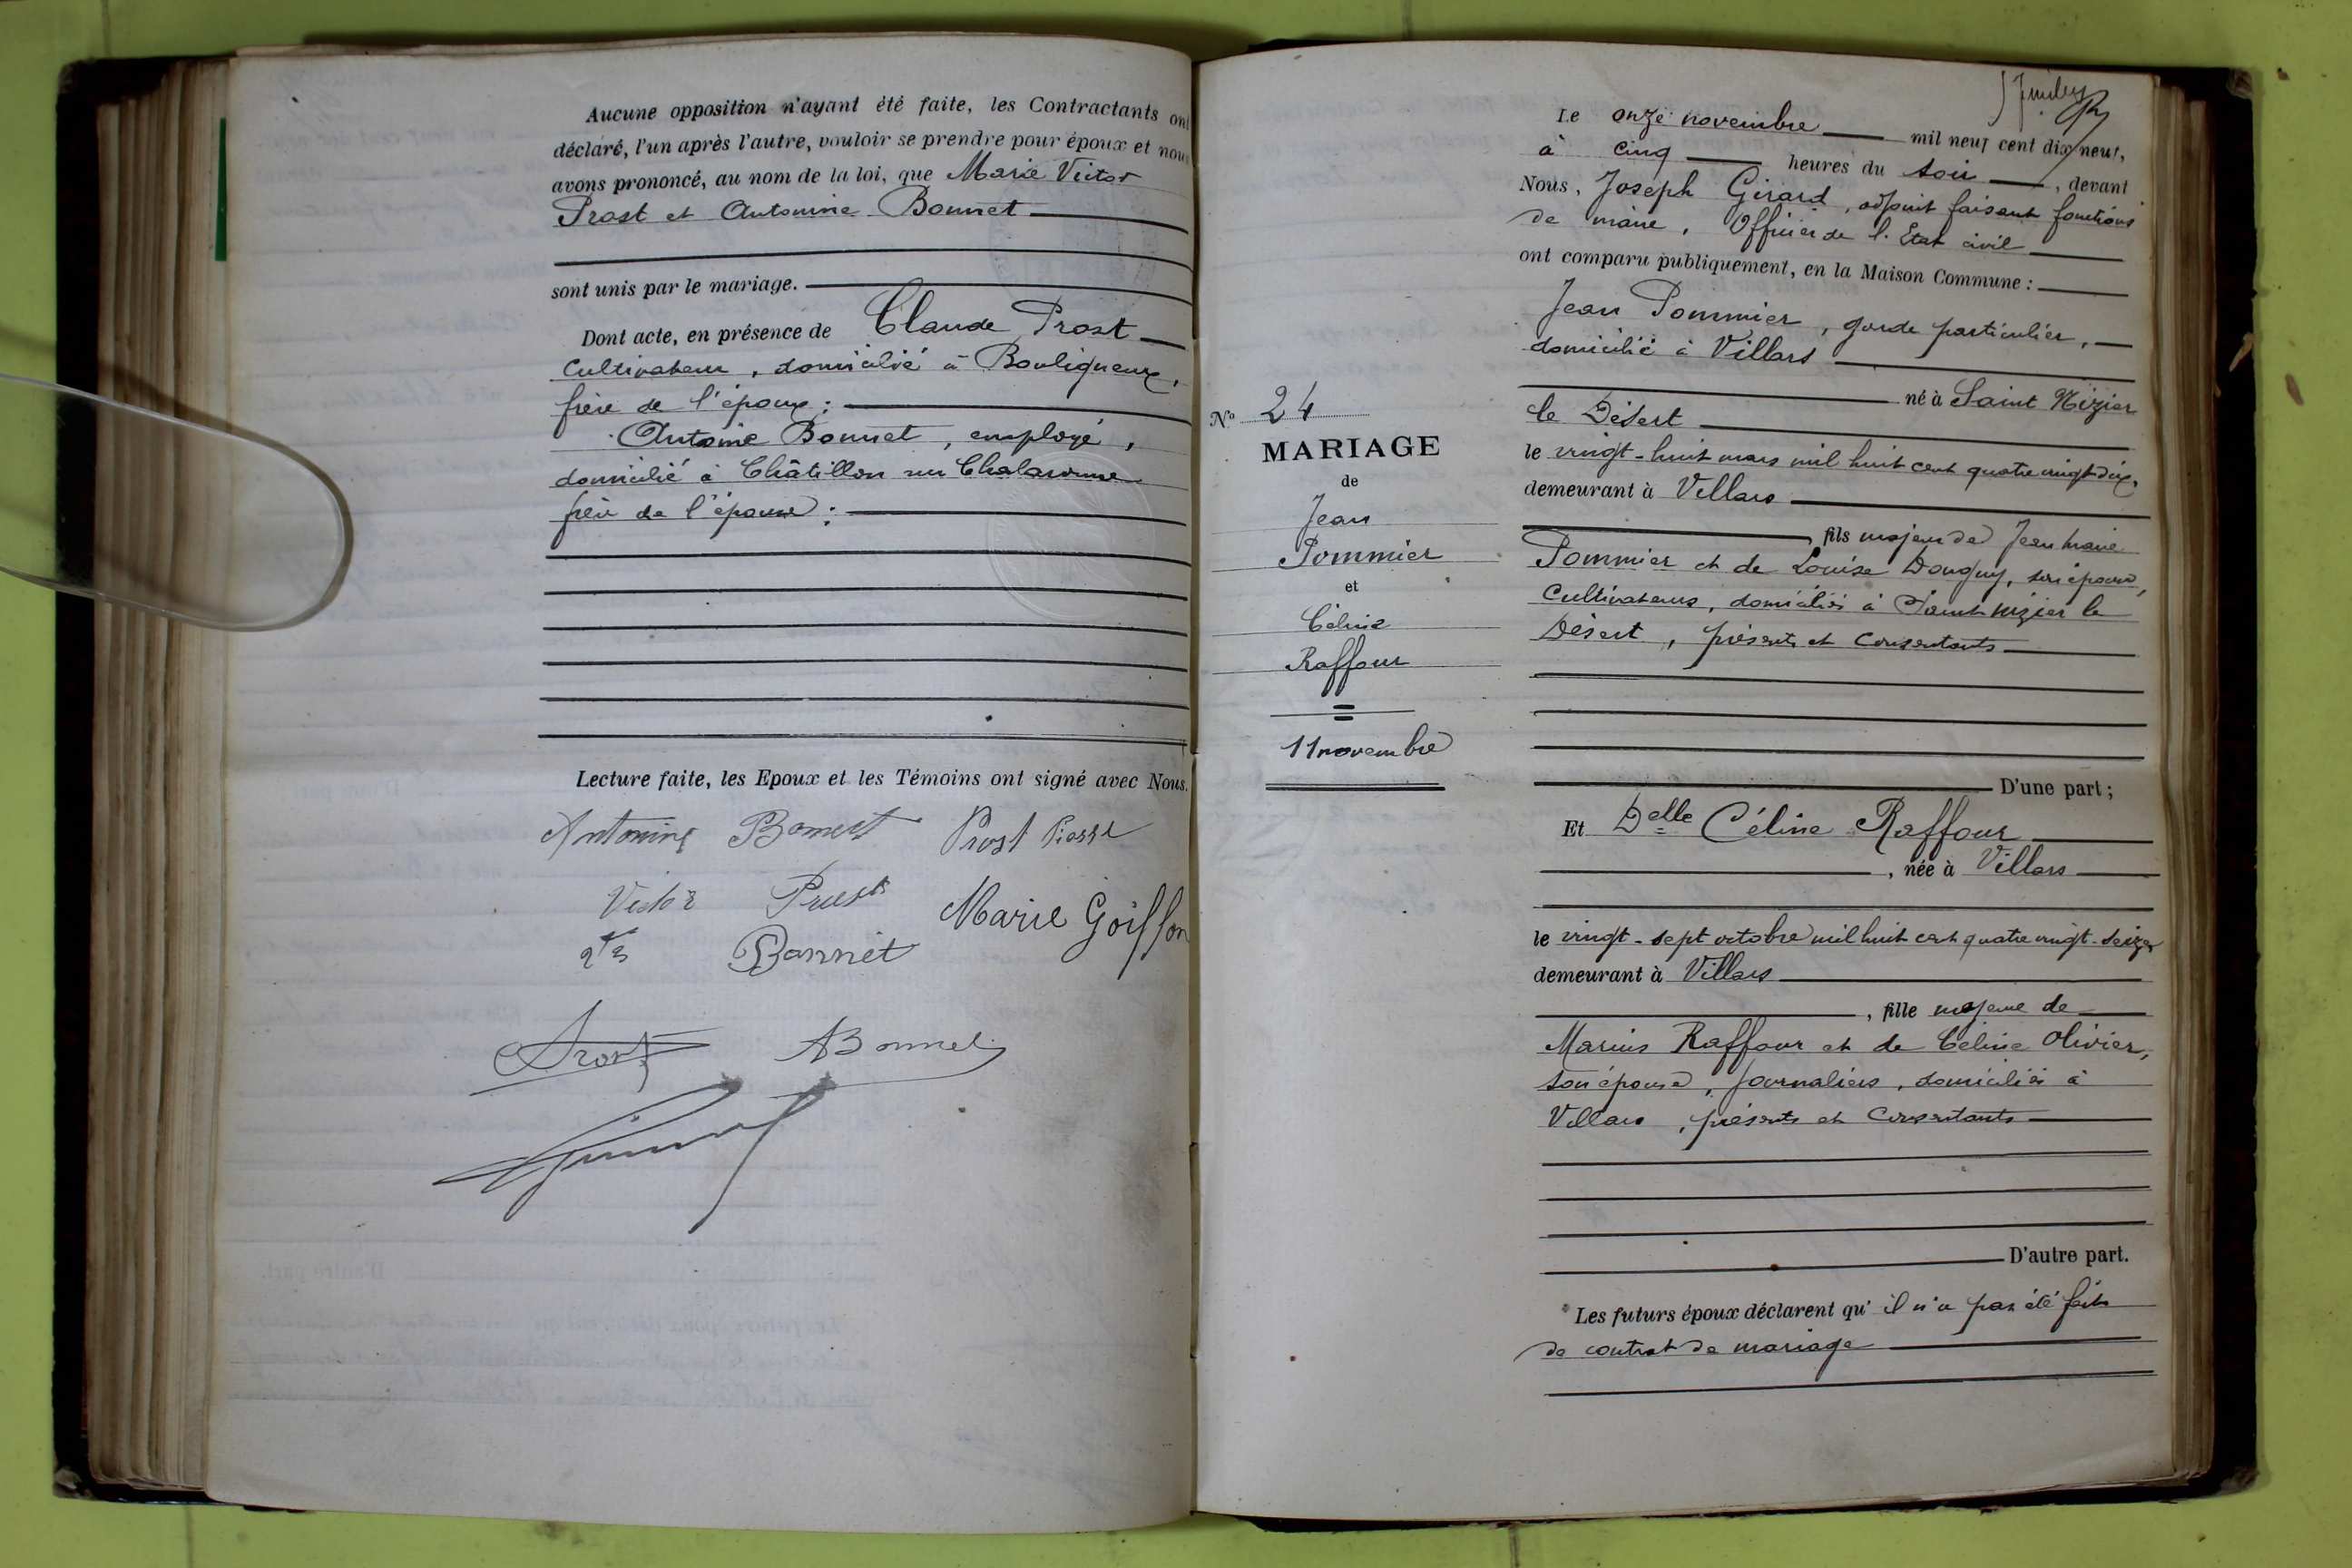 Aucune opposition n'ayant été faite, les Contractants ont
déclaré, l'un après l'autre, vouloir se prendre pour époux et nous
avons prononcé, au nom de la loi, que Marie Victor
Prost et Antonine Bonnet
sont unis par le mariage.
Dont acte, en présence de Claude Prost
cultivateur, domicilié à Bouligneux,
frère de l'époux;
Antoine Bonnet, employé,
domicilié à Châtillon sur Chalaronne
frère de l'épouse;
Lecture faite, les Epoux et les Témoins ont signé avec Nous.
Antonine Bonnet Prost Pierre
Victor Prost Marie Goiffon
Bonnet
Prost ABonnet
N° 24
MARIAGE
de
Jean
Pommier
et
Céline
Raffour
11 novembre
Le onze novembre mil neuf cent dix neuf,
à cinq heures du soir, devant
Nous, Joseph Girard, adjoint faisant fonctions
de maire, Officier de l'Etat civil
ont comparu publiquement, en la Maison Commune :
Jean Pommier, garde particulier,
domicilié à Villars
né à Saint Nizier
le Désert
le vingt-huit mars mil huit cent quatre vingt-dix,
demeurant à Villars
fils majeur de Jean Marie
Pommier et de Louise Donguy, son épouse,
cultivateurs, domiciliés à Saint Nizier le
Désert, présents et consentants
D'une part ;
Et Delle Céline Raffour
, née à Villars
le vingt-sept octobre mil huit cent quatre vingt-seize
demeurant à Villars
, fille majeure de
Marius Raffour et de Céline Olivier,
son épouse, journaliers, domiciliés à
Villars, présents et consentants
D'autre part.
Les futurs époux déclarent qu'il n'a pas été fait
de contrat de mariage